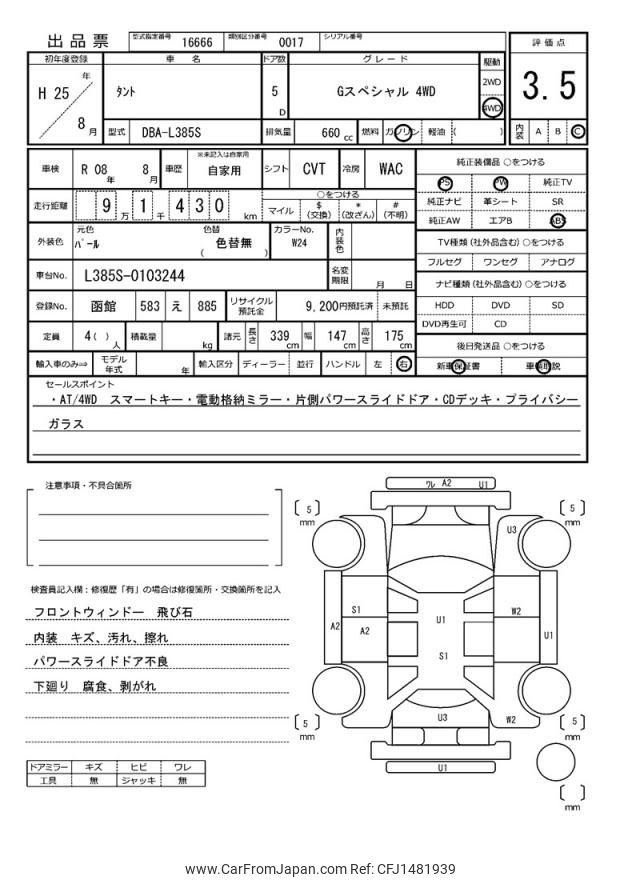 出品票 型式指定番号 16666 類別区分番号 0017 シリアル番号
評価点
3.5
内装 A B C
初年度登録 車名 ドア数 グレード 駆動
H 25 年 8 月 タント 5 D Gスペシャル 4WD 2WD 4WD
型式 DBA-L385S 排気量 660 cc 燃料 ガソリン 軽油 ( )
車検 R 08 年 8 月 車歴 ※未記入は自家用 自家用 シフト CVT 冷房 WAC
走行距離 9 万 1 千 4 3 0 km ○をつける
マイル $ (交換) * (改ざん) # (不明)
外装色 元色 パール 色替 ( 色替無 ) カラーNo. W24 内装色
車台No. L385S-0103244 名変期限 月 日
登録No. 函館 583 え 885 リサイクル預託金 9,200円預託済 未預託
定員 4( ) 人 積載量 kg 諸元 長さ 339 cm 幅 147 cm 高さ 175 cm
輸入車のみ⇒ モデル年式 年 輸入区分 ディーラー 並行 ハンドル 左 右
純正装備品 ○をつける
PS PW 純正TV
純正ナビ 革シート SR
純正AW エアB ABS
TV種類 (社外品含む) ○をつける
フルセグ ワンセグ アナログ
ナビ種類 (社外品含む) ○をつける
HDD DVD SD
DVD再生可 CD
後日発送品 ○をつける
新車保証書 車輌取説
セールスポイント
・AT/4WD スマートキー・電動格納ミラー・片側パワースライドドア・CDデッキ・プライバシー
ガラス
注意事項・不具合箇所
検査員記入欄：修復歴「有」の場合は修復箇所・交換箇所を記入
フロントウィンドー 飛び石
内装 キズ、汚れ、擦れ
パワースライドドア不良
下廻り 腐食、剥がれ
ドアミラー キズ ヒビ ワレ
工具 無 ジャッキ 無
ワレ A2 U1
5 mm
5 mm
U3
S1 U1 W2
A2 A2 S1 U1
U3 W2
5 mm
5 mm
U1
mm
www.CarFromJapan.com Ref: CFJ1481939